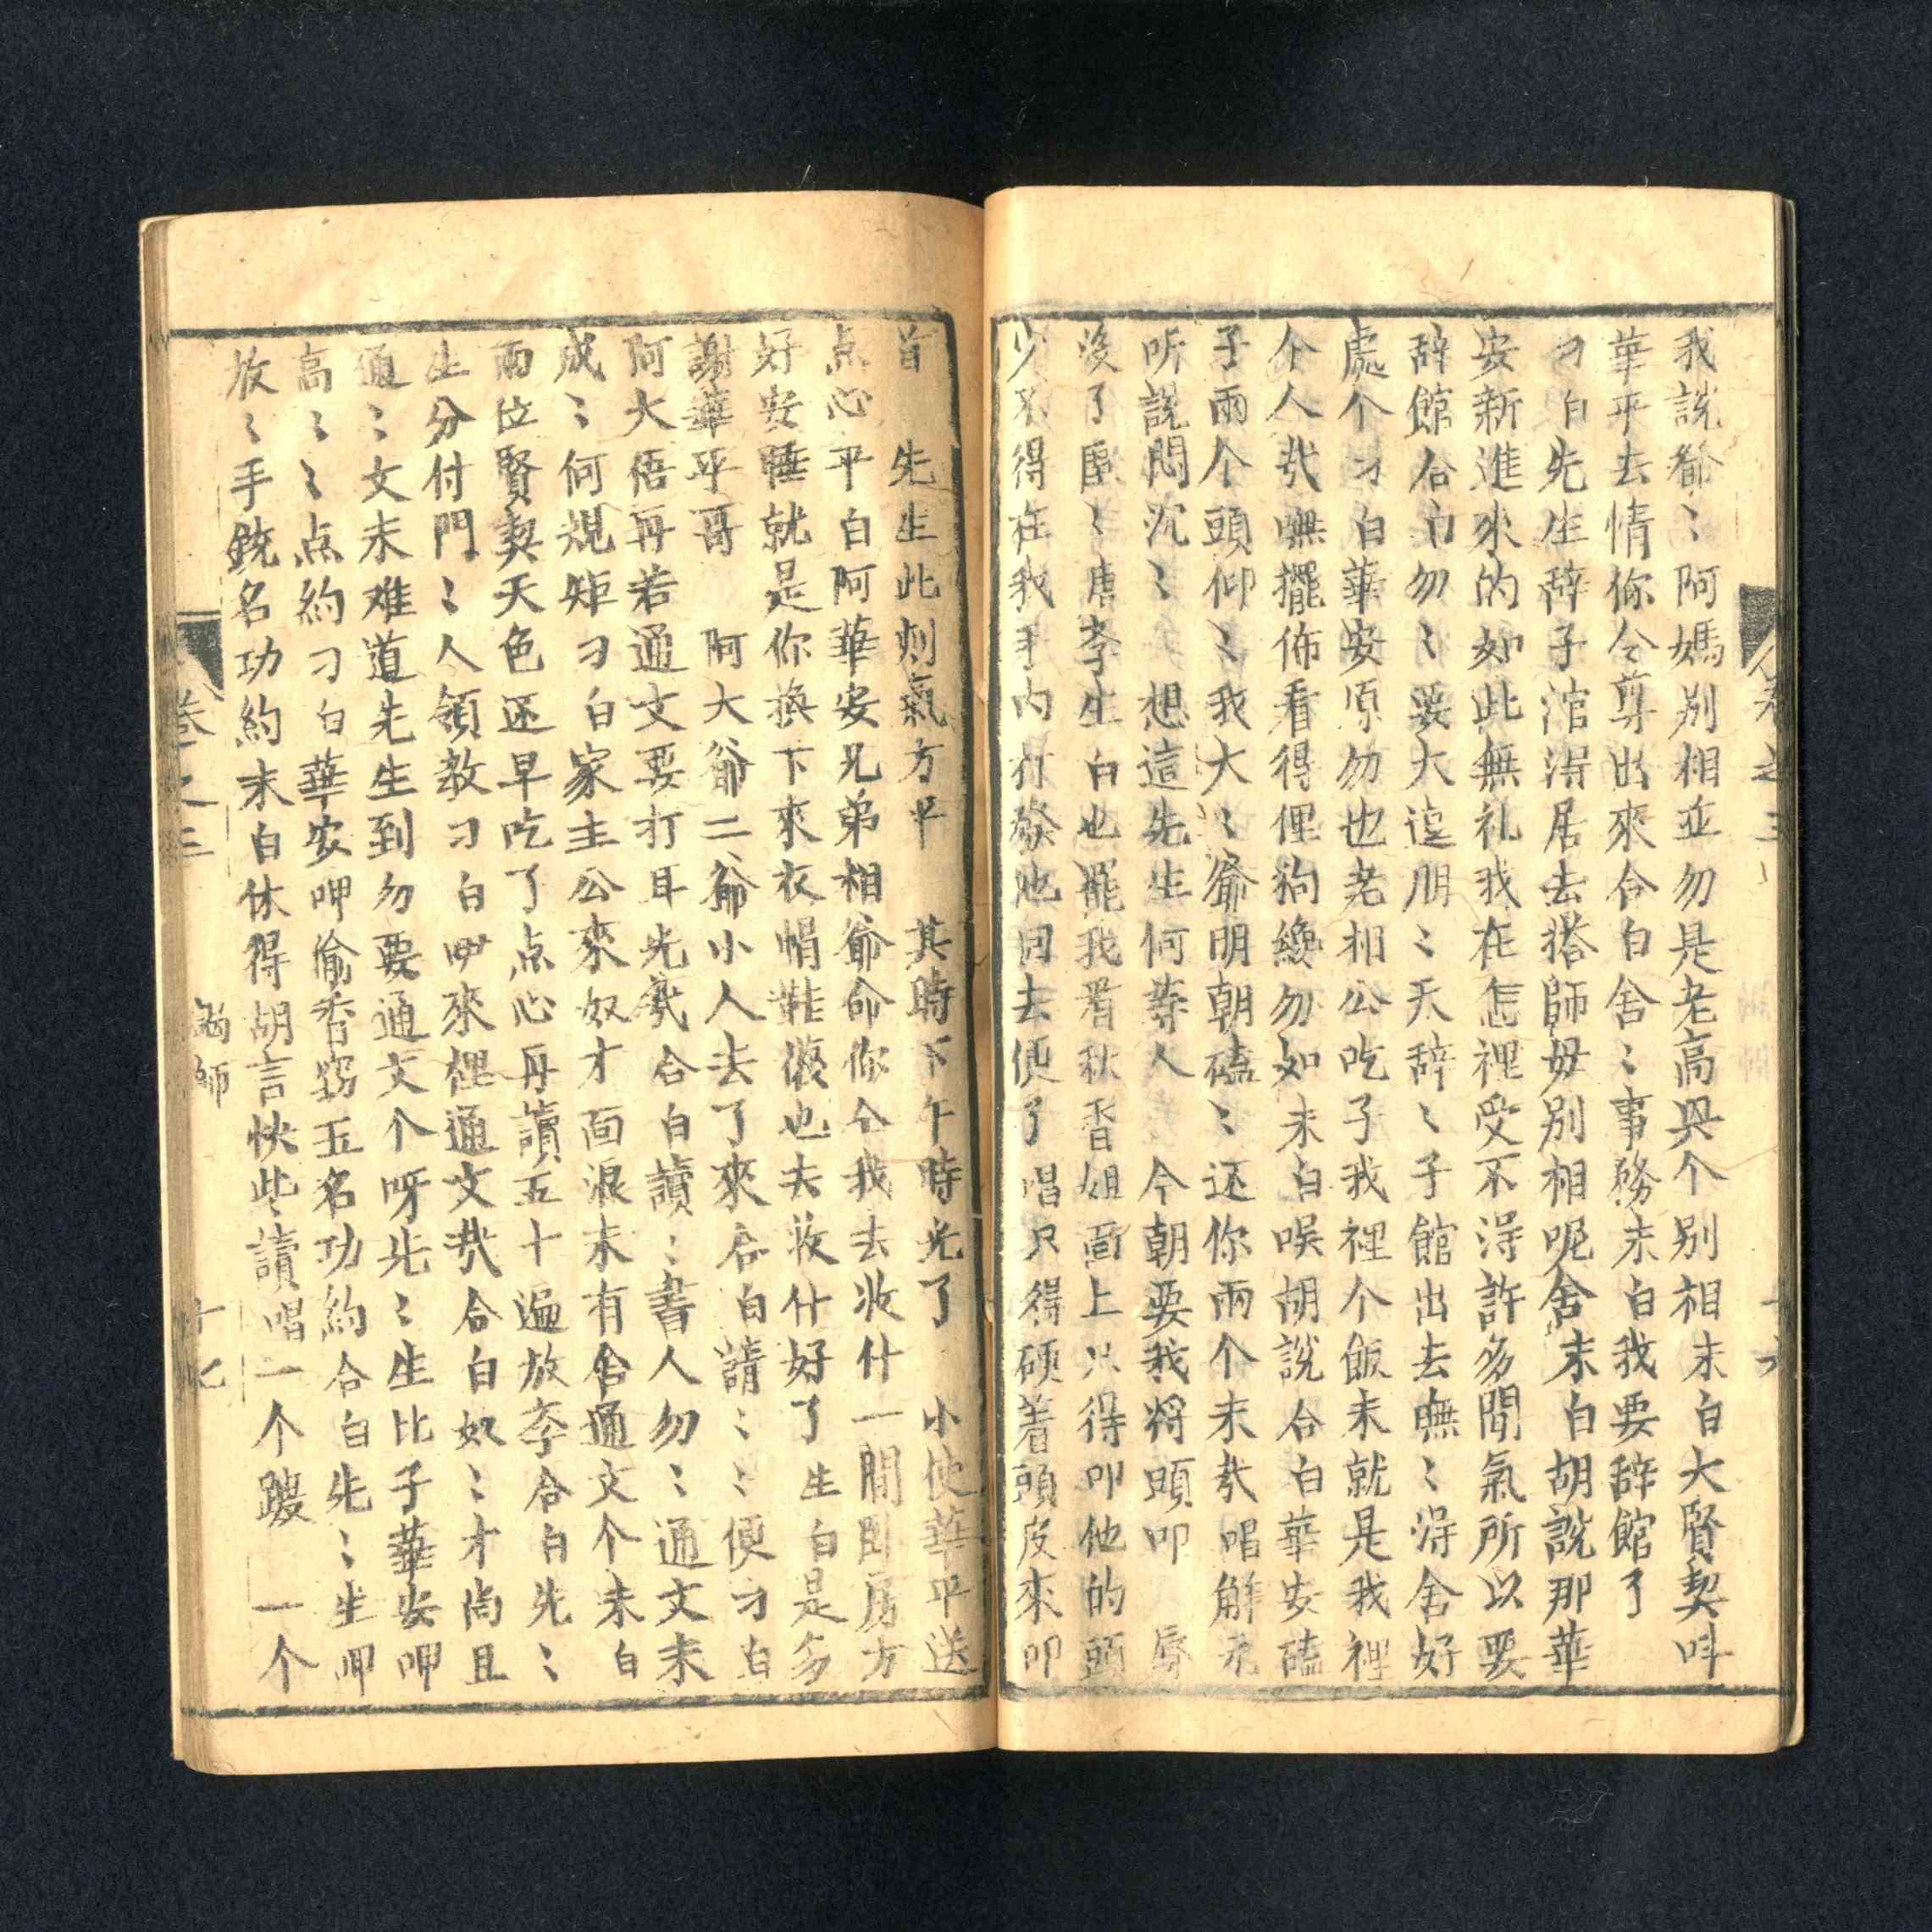 我說爺〻阿媽別相並勿是老高興个別相末白大賢契呌
華平去情你令尊出來合白舍〻事務末白我要辞館了
刁白先生辞子館湯居去搭師母別相呢舍末白胡說那華
安新進來的如此無礼我在怎裡受不淂許多閒氣所以要
辞館合白勿〻要大遠朋〻天辞〻子館出去嘸〻淂舍好
處个刁白華安原勿也老相公吃子我裡个飯末就是我裡
个人哉嘸擺佈看得俚狗纔勿如末白唉胡說合白華安磕
子兩个頭仰〻我大〻爺明朝磕〻还你兩个末哉唱解元
听說悶沉〻想這先生何等人今朝要我將頭叩辱
沒了唐李生白也罷我看秋香姐靣上只得叩他的頭
少不得在我手內打發他回去便了唱只得硬着頭皮來叩
首先生此刻氣方平其時下午時光了小使華平送
点心平白阿華安兄弟相爺命你令我去收什一間卧房方
好安睡就是你換下來衣帽鞋襪也去收什好了生白是多
謝華平哥阿大爺二爺小人去了來合白請〻〻便刁白
阿大倍再若通文要打耳光哉合白讀〻書人勿〻通文末
成〻何規矩刁白家主公來奴才面浪末有舍通文个末白
兩位賢契天色还早吃了点心再讀五十遍放李合白先〻
生分付門〻人領教刁白叩來裡通文哉合白奴〻才尚且
通〻文末难道先生到勿要通文个呀先〻生比子華安呷
高〻〻点約刁白華安呷偷香窃玉名功約合白先〻生呷
放〻手銃名功約末白休得胡言快些讀唱一个一个
卷之三
十七